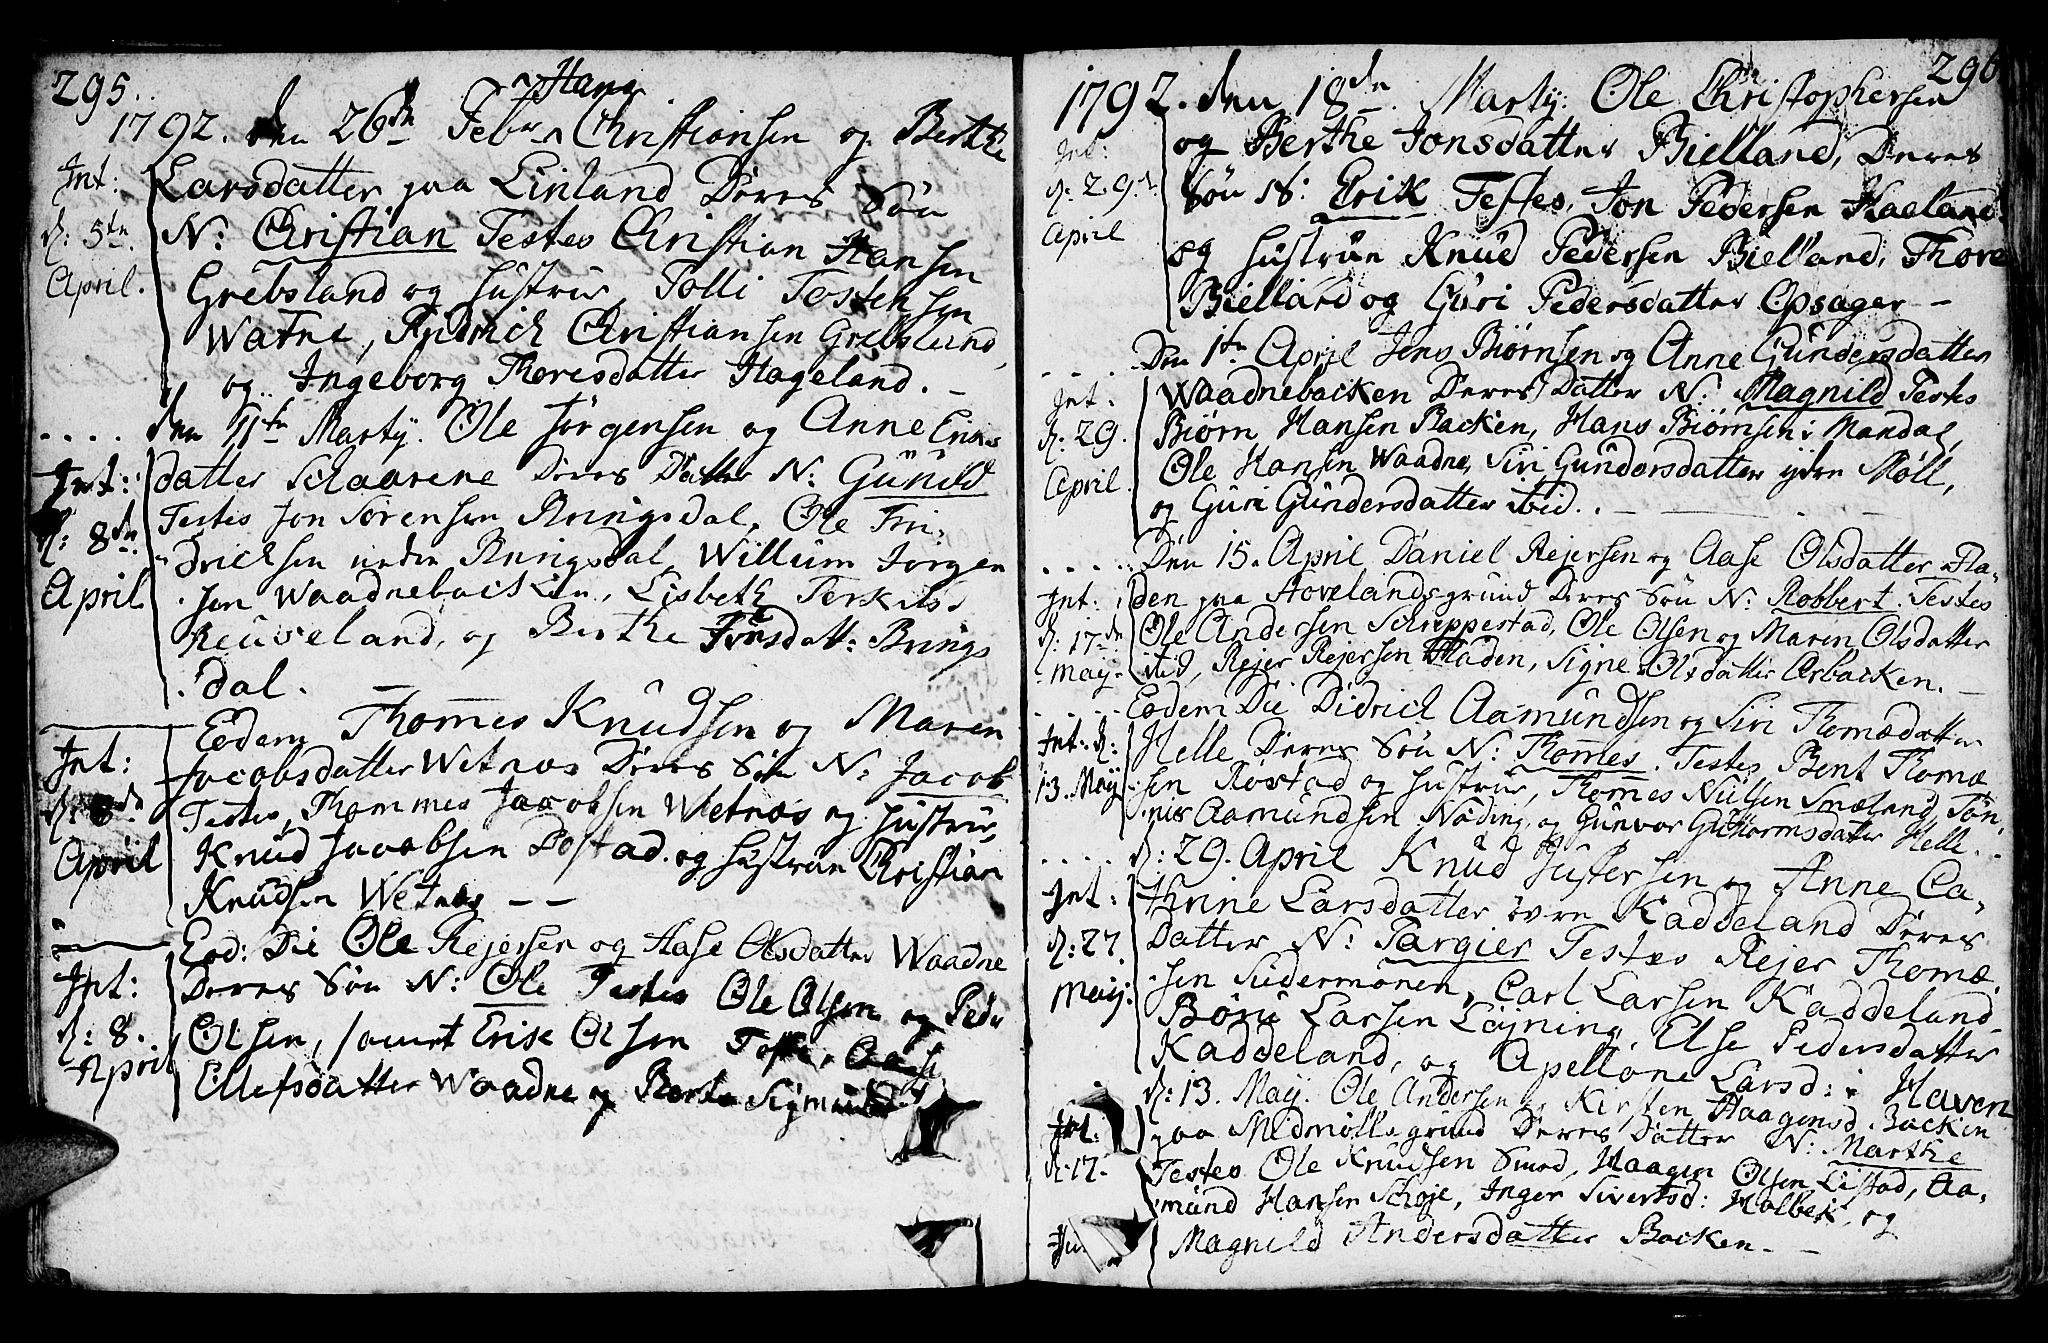 295.
Hans
1792. den 26de Febr ^ Christiansen og Berthe
Int: Larsdatter paa Linland Deres Søn
d: 5te N: Christian Testes Christian Hansen
April. Grebsland og hustrue, Tolli Testensen
Watne, Fridrich Christiansen Grebsland,
og Ingeborg Thoresdatter Hageland. -
.... den 11te Marty. Ole Jørgensen og Anne Eriks
Int: datter Schaarene Deres Datter N: Gunild
Testes Jon Sørensen Bringsdal, Ole Fri-
d: 8de drichsen Bringsdal, Willum Jørgen
April sen Waadnebacken, Lisbeth Terkilsd
Reuveland, og Berthe Jonsdatt: Brings
dal. -
Eodem Thommes Knudsen og Maren
Int: Jacobsdatter Wetnes Deres Søn N: Jacob
Testes, Thommes Jacobsen Wetnes og hustrue,
April Knud Jacobsen Dostad og hustrue Christian
Knudsen Wetnes - -
Eod: Die Ole Rejersen og Aase Olsdatter Waadne
Int: Deres Søn N: Ole Testes Ole Olsen og Peder
d: 8. Olsen, samt Erik Olsen Aase
April Ellefsdatter Waadne og Berte Sigmunds
296
1792. den 18de. Marty. Ole Christophersen
Int: og Berthe Jonsdatter Bielland, Deres
d: 29de Søn N: Erik Testes, Jon Pedersen Haeland
April og hustrue Knud Pedersen Bielland, Thore
Bielland og Guri Pedersdatter Opsager -
.... Den 1te April Jens Biørnsen og Anne Gundersdatter
Int. Waadnebacken Deres Datter N: Magnild Testes
d: 29. Biørn Hansen Backen, Hans Biørnsen i Mandal,
April. Ole Hansen Waadne, Siri Gundersdatter ydre Møll,
og Guri Gundersdatter ibid. -
.... Den 15. April Daniel Rejersen og Aase Olsdatter Fla-
Int: den paa Hovelandsgrund Deres Søn N: Robbert. Testes
d: 17de Ole Andersen Schreppestad, Ole Olsen og Maren Olsdatter
May. ibid, Rejer Rejersen Fladen, Signe Olsdatter Orbacken. -
.... Eodem Die Didrich Aamundsen og Siri Thomædatter
Int: d: Helle Deres Søn N: Thommes. Testes Bent Thomæ
13. May sen Røstad og hustrue, Thommes Nielsen Smæland, Tøn-
nis Aamundsen Nøding, og Gunvor Guttormsdatter Helle.
.... d: 29. April Knud Justersen og Anne Ca-
Int: thrine Larsdatter øvre Kaddeland Deres
d: 27. Datter N: Targier Testes Rejer Thomæ
May: sen Sudermonen, Carl Larsen Kaddeland
Børu Larsen Løjning, Else Pedersdatter
Kaddeland, og Apellone Larsd: i Haven
d: 13. May. Ole Andersen og Kirsten Haagensd. Backen
Int: paa Midmøllsgrund Deres Datter N: Marthe
d: 17. Testes Ole Knudsen Smed, Haagen Olsen Listad, Aa-
mund Hansen Schøje, Inger Sivertsd: Holbek, og
Magnild Andersdatter Backen. -